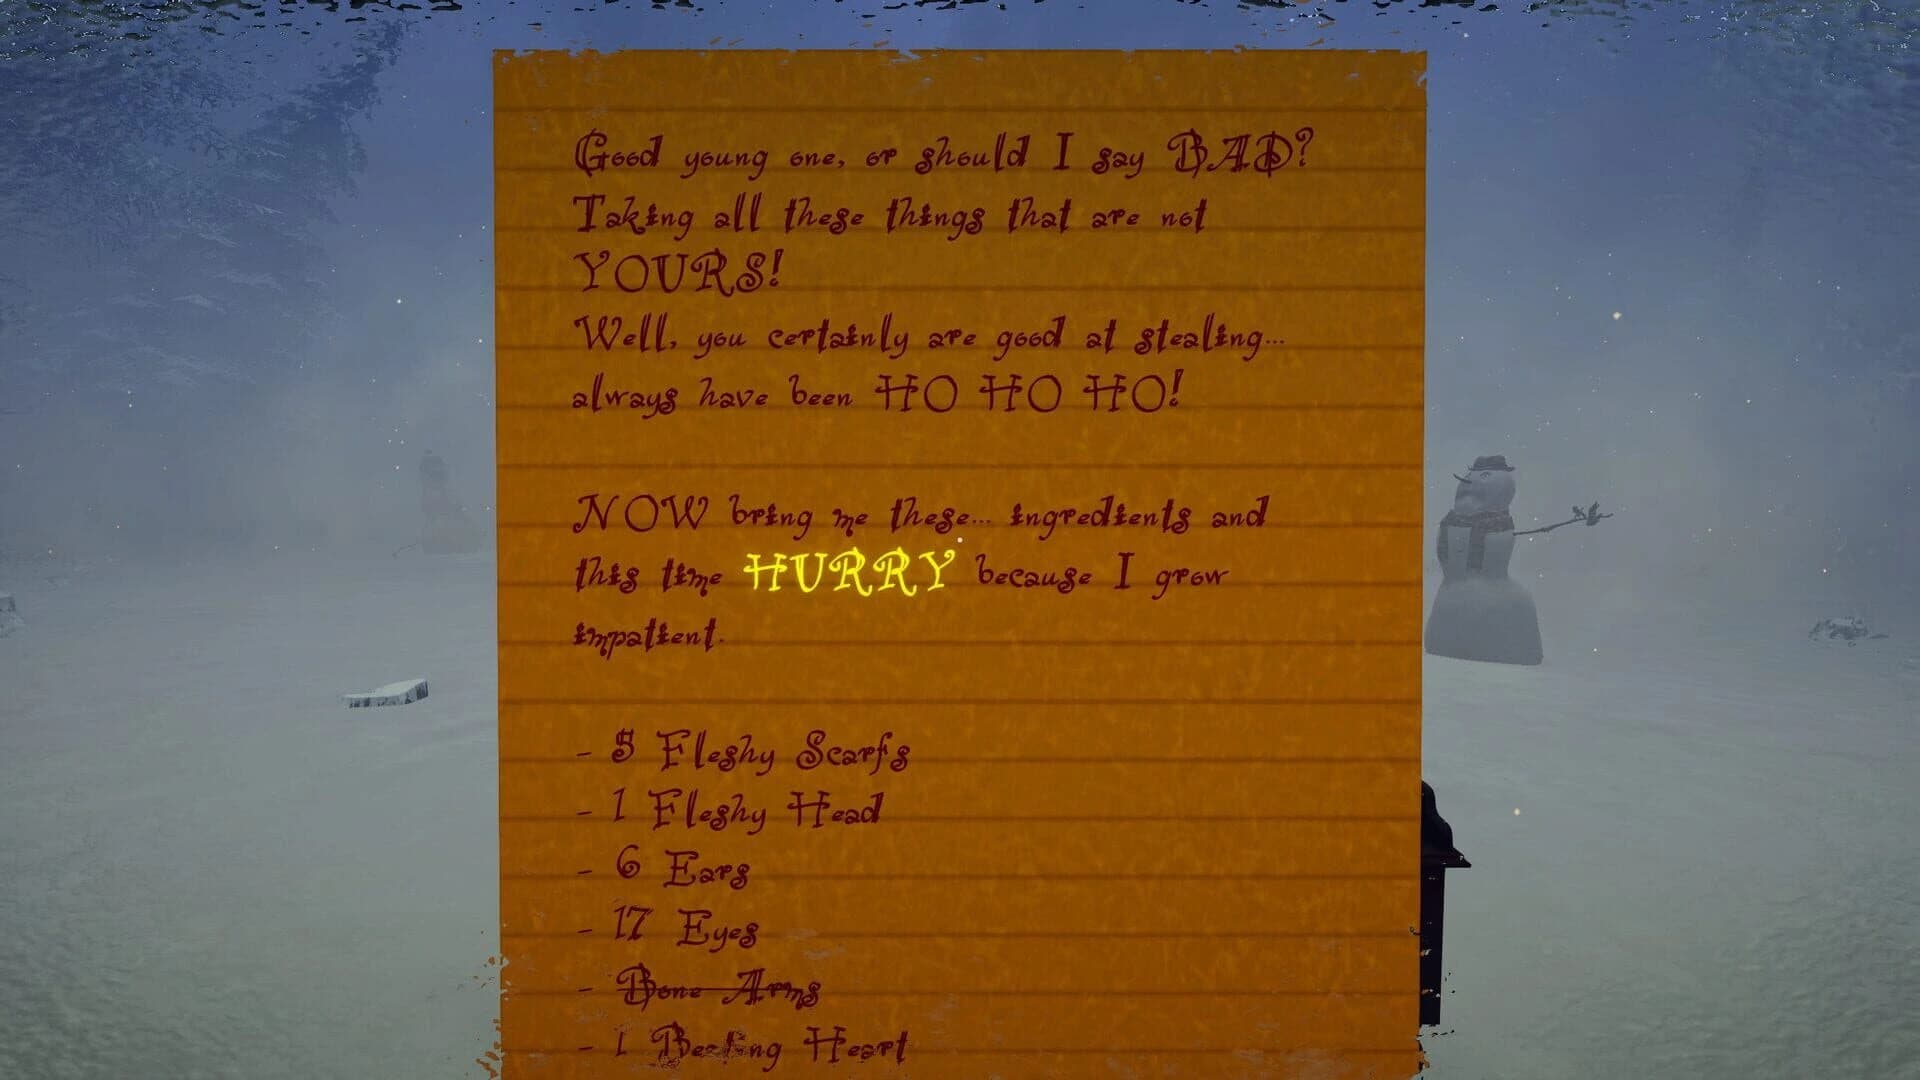 Good young one, or should I say BAD?
Taking all these things that are not
YOURS!
Well, you certainly are good at stealing...
always have been HO HO HO!
NOW bring me these... ingredients and
this time HURRY because I grow
impatient.
- 5 Fleshy Scarfs
- 1 Fleshy Head
- 6 Ears
- 17 Eyes
- Bone Arms
- 1 Beating Heart